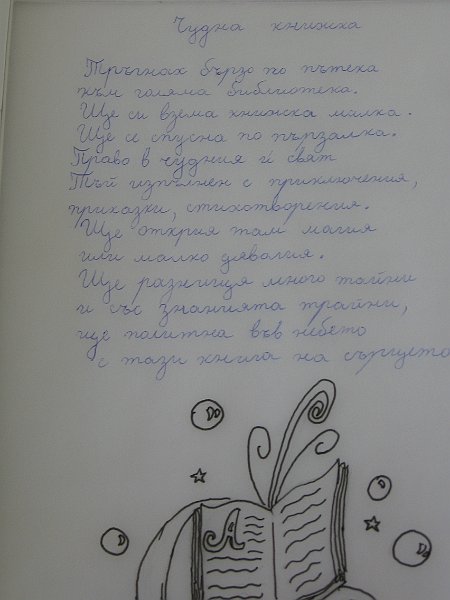 Чудна книжка
Тръгнах бързо по пътека
към голяма библиотека.
Ще си взема книжка малка.
Ще се спусна по пързалка.
Право в чудния ѝ свят
Тъй изпълнен с приключения,
приказки, стихотворения.
Ще открия там магия
или малко дяволия.
Ще разнищя много тайни
и със знанията трайни,
ще политна във небето
с тази книга на сърцето
А